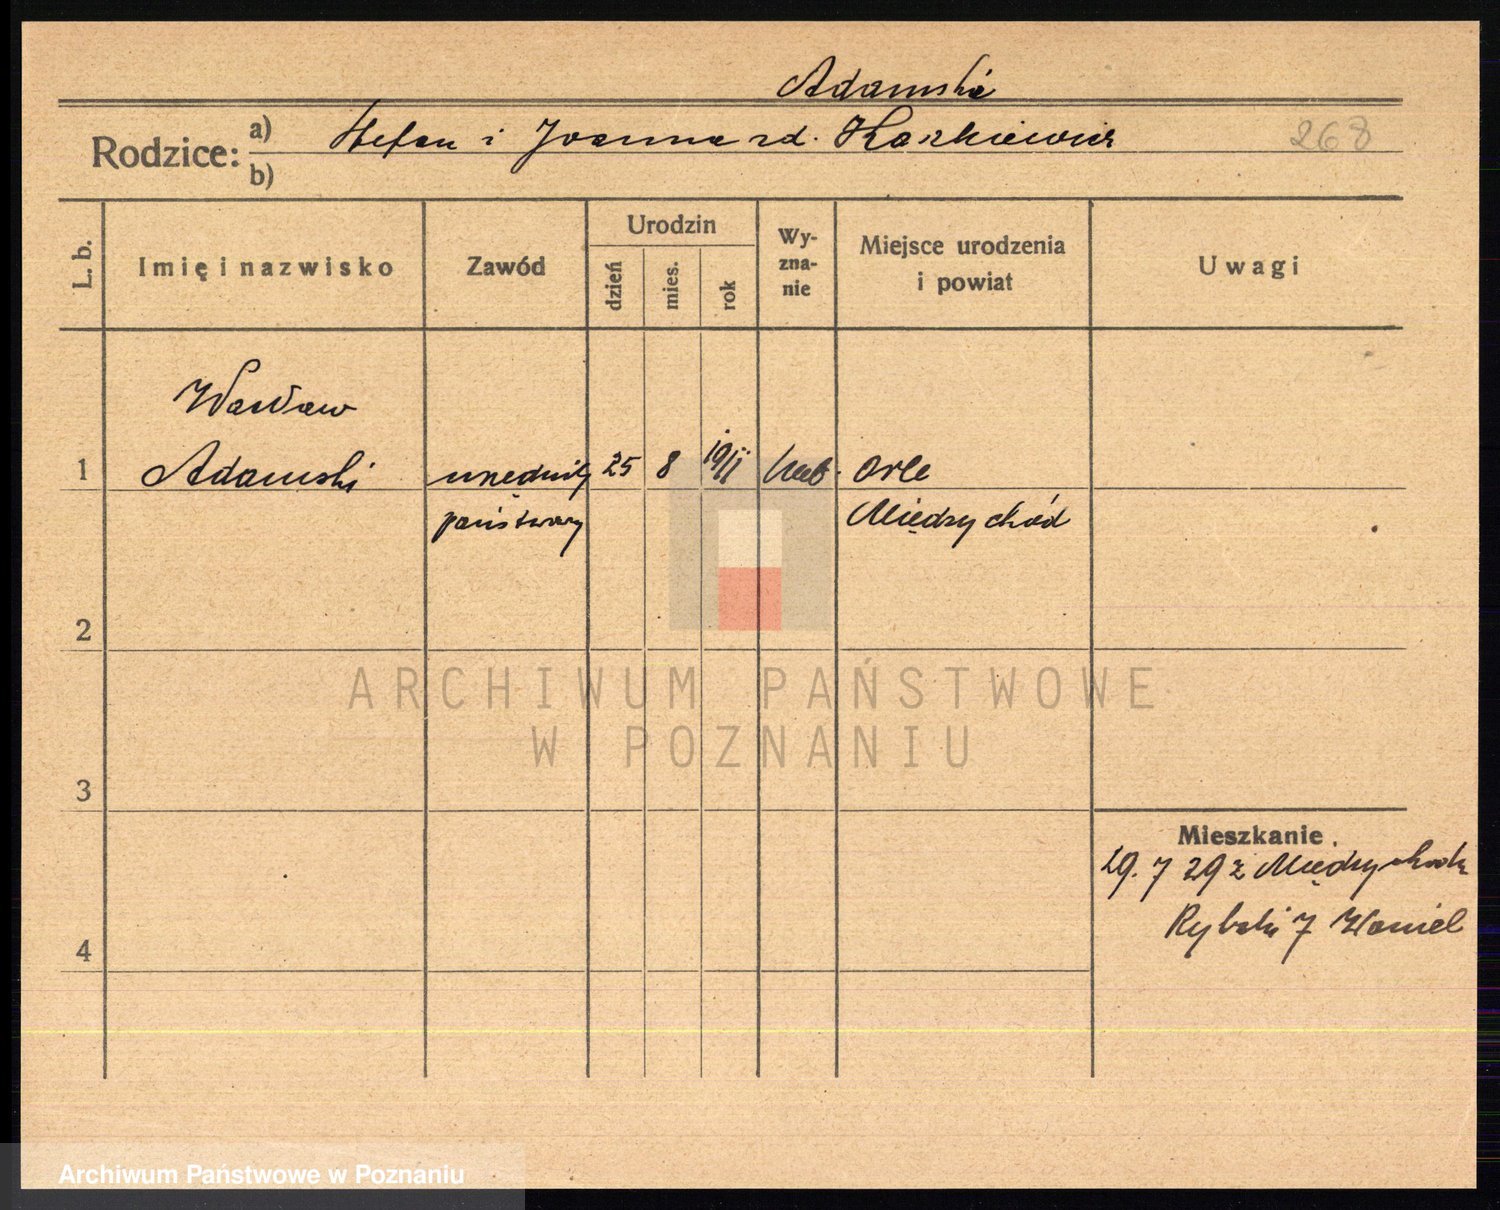 Adamski
Rodzice: a) Stefan i Joanna zd. Kaszkiewicz 268
b)
L. b. Imię i nazwisko Zawód Urodzin dzień mies. rok Wy-zna-nie Miejsce urodzenia i powiat Uwagi
Wacław
1 Adamski urzędnik 25 8 1911 kat. Orle
państwowy Międzychód
2
ARCHIWUM PAŃSTWOWE
W POZNANIU
3
Mieszkanie.
29. 7 29 z Międzychodu
Rybaki 7
4
Archiwum Państwowe w Poznaniu